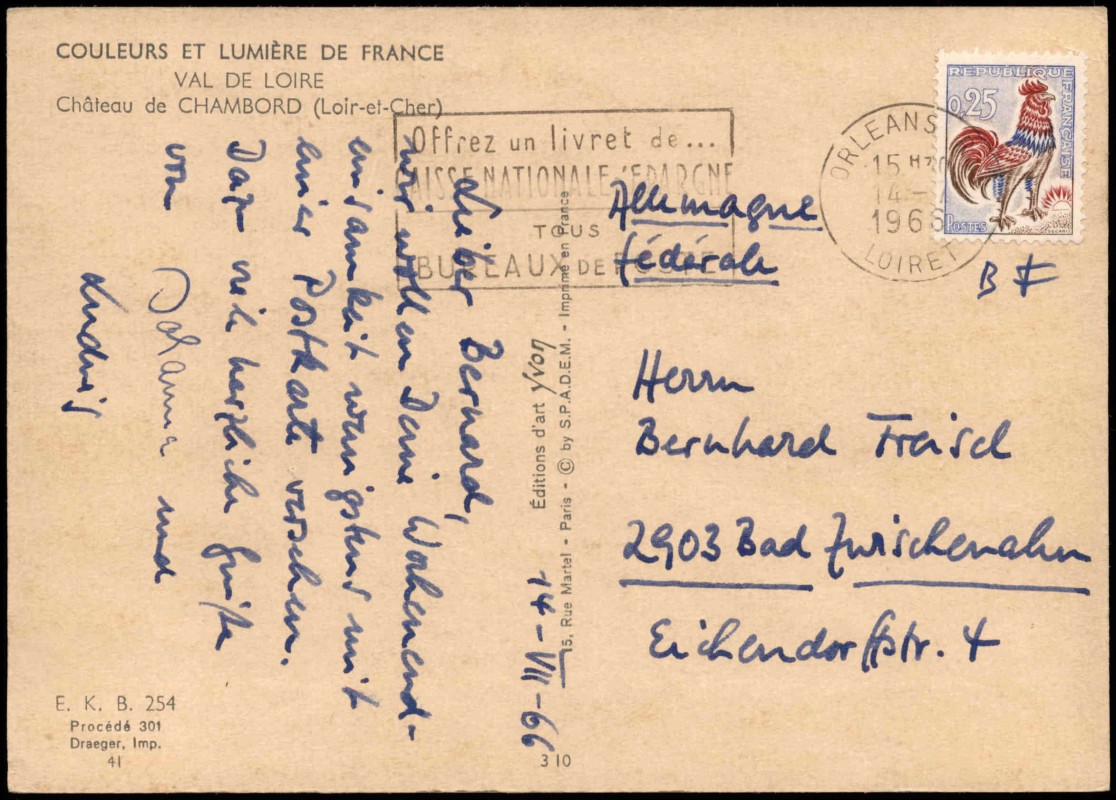 COULEURS ET LUMIÈRE DE FRANCE
VAL DE LOIRE
Château de CHAMBORD (Loir-et-Cher)
Offrez un livret de...
AISSE NATIONALE D'EPARGNE
TOUS
BUREAUX DE
ORLEANS
15 H
14-
1966
LOIRET
REPUBLIQUE FRANÇAISE
0,25
POSTES
Allemagne
fédérale
B F
Herrn
Bernhard Freisel
2903 Bad Zwischenahn
Eichendorffstr. 4
14-VII-66
Lieber Bernard,
wir wollen Deine Wochenend-
einsamkeit wenigstens mit
einer Postkarte versehen.
Dazu viele herzliche Grüße
von
und
Ludwig
Éditions d'art yvon
15, Rue Martel - Paris - © by S.P.A.D.E.M. - Imprimé en France
E. K. B. 254
Procédé 301
Draeger, Imp.
41
3 10